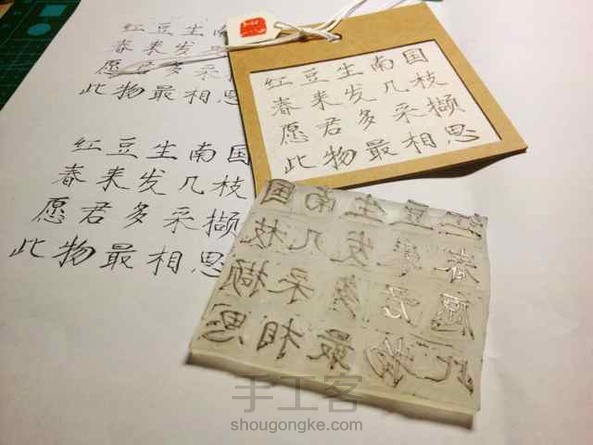 红豆生南
春来发
愿君多采
此物最相思
红豆生南国
春来发几枝
愿君多采撷
此物最相思
红豆生南国
春来发几枝
愿君多采撷
此物最相思
红豆生南国
春来发几枝
愿君多采撷
此物最相思
手工客
shougongke.com